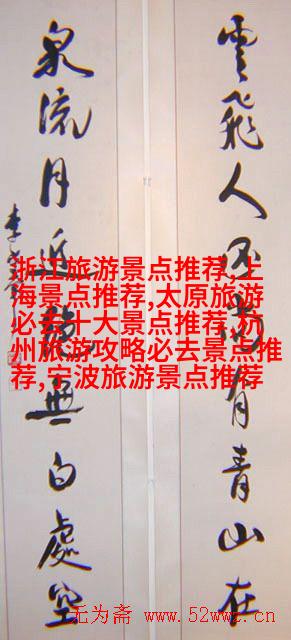 雲飛人不有青山在
泉流月近無白處空
李
浙江旅游景点推荐,上
海景点推荐,太原旅游
必去十大景点推荐,杭
州旅游攻略必去景点推
荐,宁波旅游景点推荐
无为斋 www.52wwz.cn